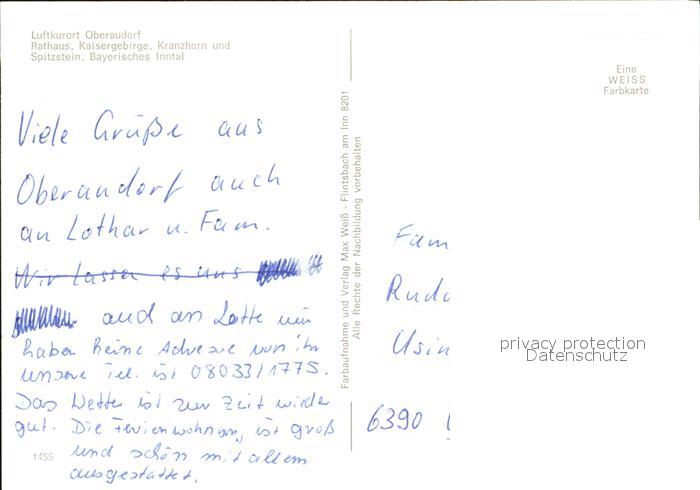 Luftkurort Oberaudorf
Rathaus, Kaisergebirge, Kranzhorn und
Spitzstein. Bayerisches Inntal
Eine
WEISS
Farbkarte
Viele Grüße aus
Oberaudorf auch
an Lothar u. Fam.
Wir lassen es uns
und an Lotte wir
haben keine Adresse von ihr
unsere Tel. ist 08033/1775.
Das Wetter ist zur Zeit wieder
gut. Die Ferienwohnung ist groß
und schön mit allem
ausgestattet.
1455
Farbaufnahme und Verlag Max Weiß - Flintsbach am Inn 8201
Alle Rechte der Nachbildung vorbehalten
Fam
Rudo
Usin
6390
privacy protection
Datenschutz